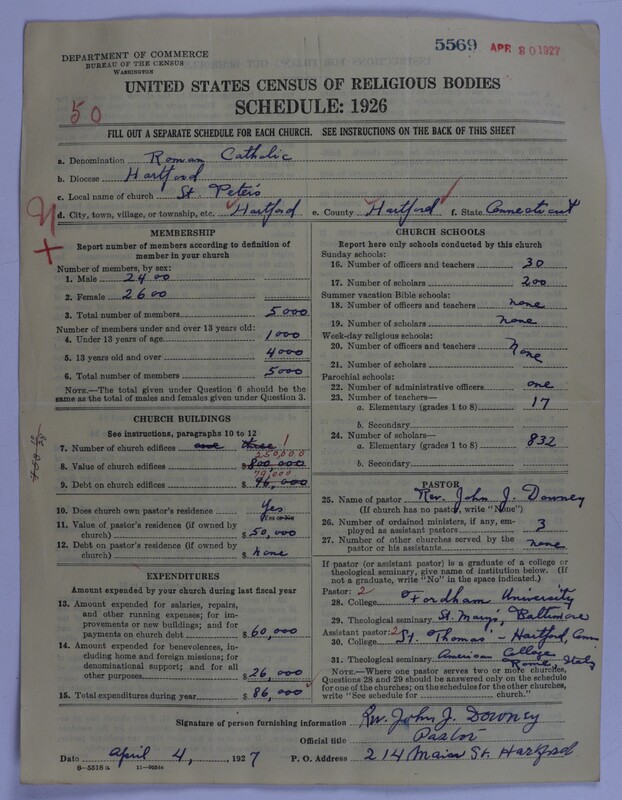 5569 APR 30 1927
DEPARTMENT OF COMMERCE
BUREAU OF THE CENSUS
WASHINGTON
UNITED STATES CENSUS OF RELIGIOUS BODIES
SCHEDULE: 1926
50
FILL OUT A SEPARATE SCHEDULE FOR EACH CHURCH. SEE INSTRUCTIONS ON THE BACK OF THIS SHEET
a. Denomination Roman Catholic
b. Diocese Hartford
c. Local name of church St. Peter's
d. City, town, village, or township, etc. Hartford e. County Hartford f. State Connecticut
MEMBERSHIP
Report number of members according to definition of
member in your church
Number of members, by sex:
1. Male 2400
2. Female 2600
3. Total number of members 5000
Number of members under and over 13 years old:
4. Under 13 years of age 1000
5. 13 years old and over 4000
6. Total number of members 5000
NOTE.—The total given under Question 6 should be the
same as the total of males and females given under Question 3.
CHURCH BUILDINGS
See instructions, paragraphs 10 to 12
7. Number of church edifices one three 1
250,000
8. Value of church edifices $ 800,000
79,000
9. Debt on church edifices $ 96,000
10. Does church own pastor's residence? Yes
Yes or No
11. Value of pastor's residence (if owned by
church) $ 50,000
12. Debt on pastor's residence (if owned by
church) $ none
EXPENDITURES
Amount expended by your church during last fiscal year
13. Amount expended for salaries, repairs,
and other running expenses; for im-
provements or new buildings; and for
payments on church debt $ 60,000
14. Amount expended for benevolences, in-
cluding home and foreign missions; for
denominational support; and for all
other purposes $ 26,000
15. Total expenditures during year $ 86,000
CHURCH SCHOOLS
Report here only schools conducted by this church
Sunday schools:
16. Number of officers and teachers 30
17. Number of scholars 200
Summer vacation Bible schools:
18. Number of officers and teachers none
19. Number of scholars none
Week-day religious schools:
20. Number of officers and teachers None
21. Number of scholars
Parochial schools:
22. Number of administrative officers one
23. Number of teachers—
a. Elementary (grades 1 to 8) 17
b. Secondary
24. Number of scholars—
a. Elementary (grades 1 to 8) 832
b. Secondary
PASTOR
25. Name of pastor Rev. John J. Downey
(If church has no pastor, write "None")
26. Number of ordained ministers, if any, em-
ployed as assistant pastors 3
27. Number of other churches served by the
pastor or his assistants none
If pastor (or assistant pastor) is a graduate of a college or
theological seminary, give name of institution below. (If
not a graduate, write "No" in the space indicated.)
Pastor: 2
28. College Fordham University
29. Theological seminary St. Mary's, Baltimore
Assistant pastor: 2
30. College St. Thomas' - Hartford, Conn
31. Theological seminary American College
Rome, Italy
NOTE.—Where one pastor serves two or more churches,
Questions 28 and 29 should be answered only on the schedule
for one of the churches; on the schedules for the other churches,
write "See schedule for church."
Signature of person furnishing information Rev. John J. Downey
Official title Pastor
Date April 4, 1927 P. O. Address 214 Main St. Hartford
8—5518a 11—